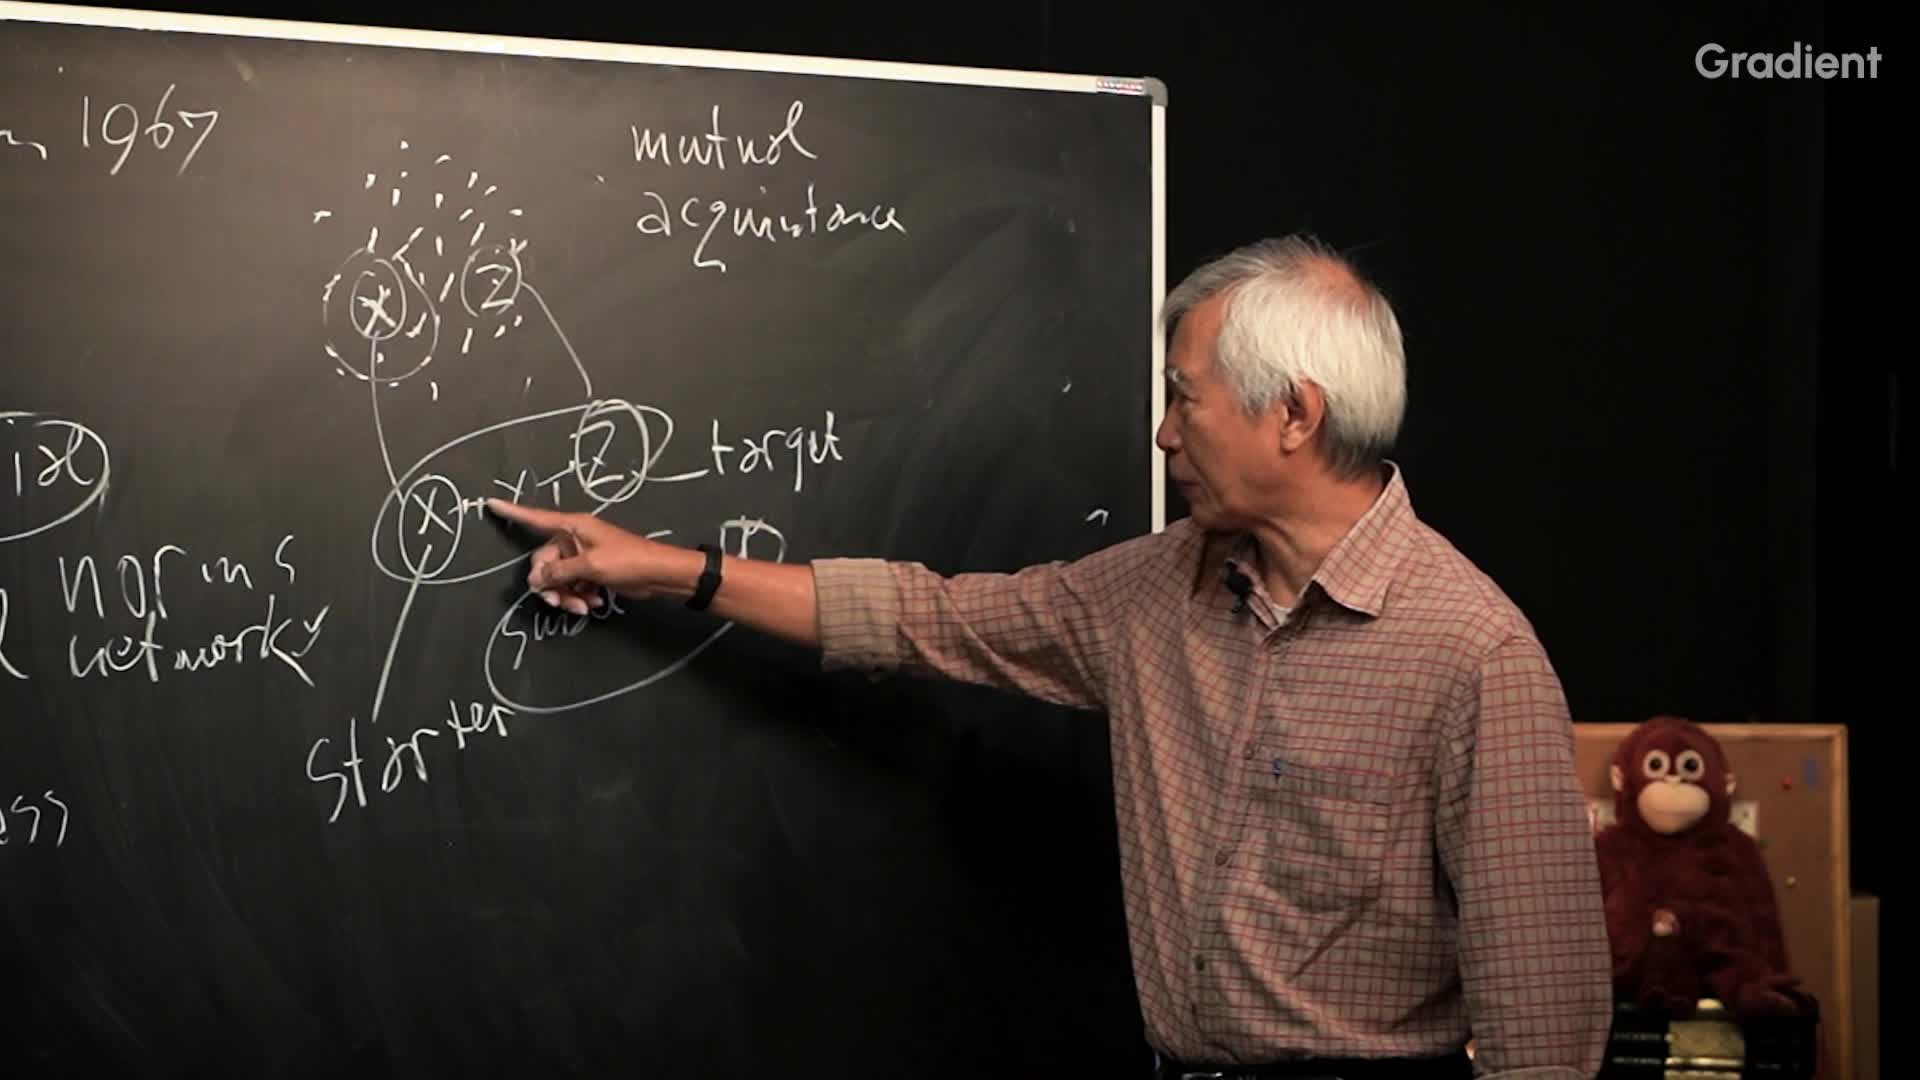 Gradient
1967
mutual
acquintance
X
Z
Z
target
X
Y
norms
networks
Starter